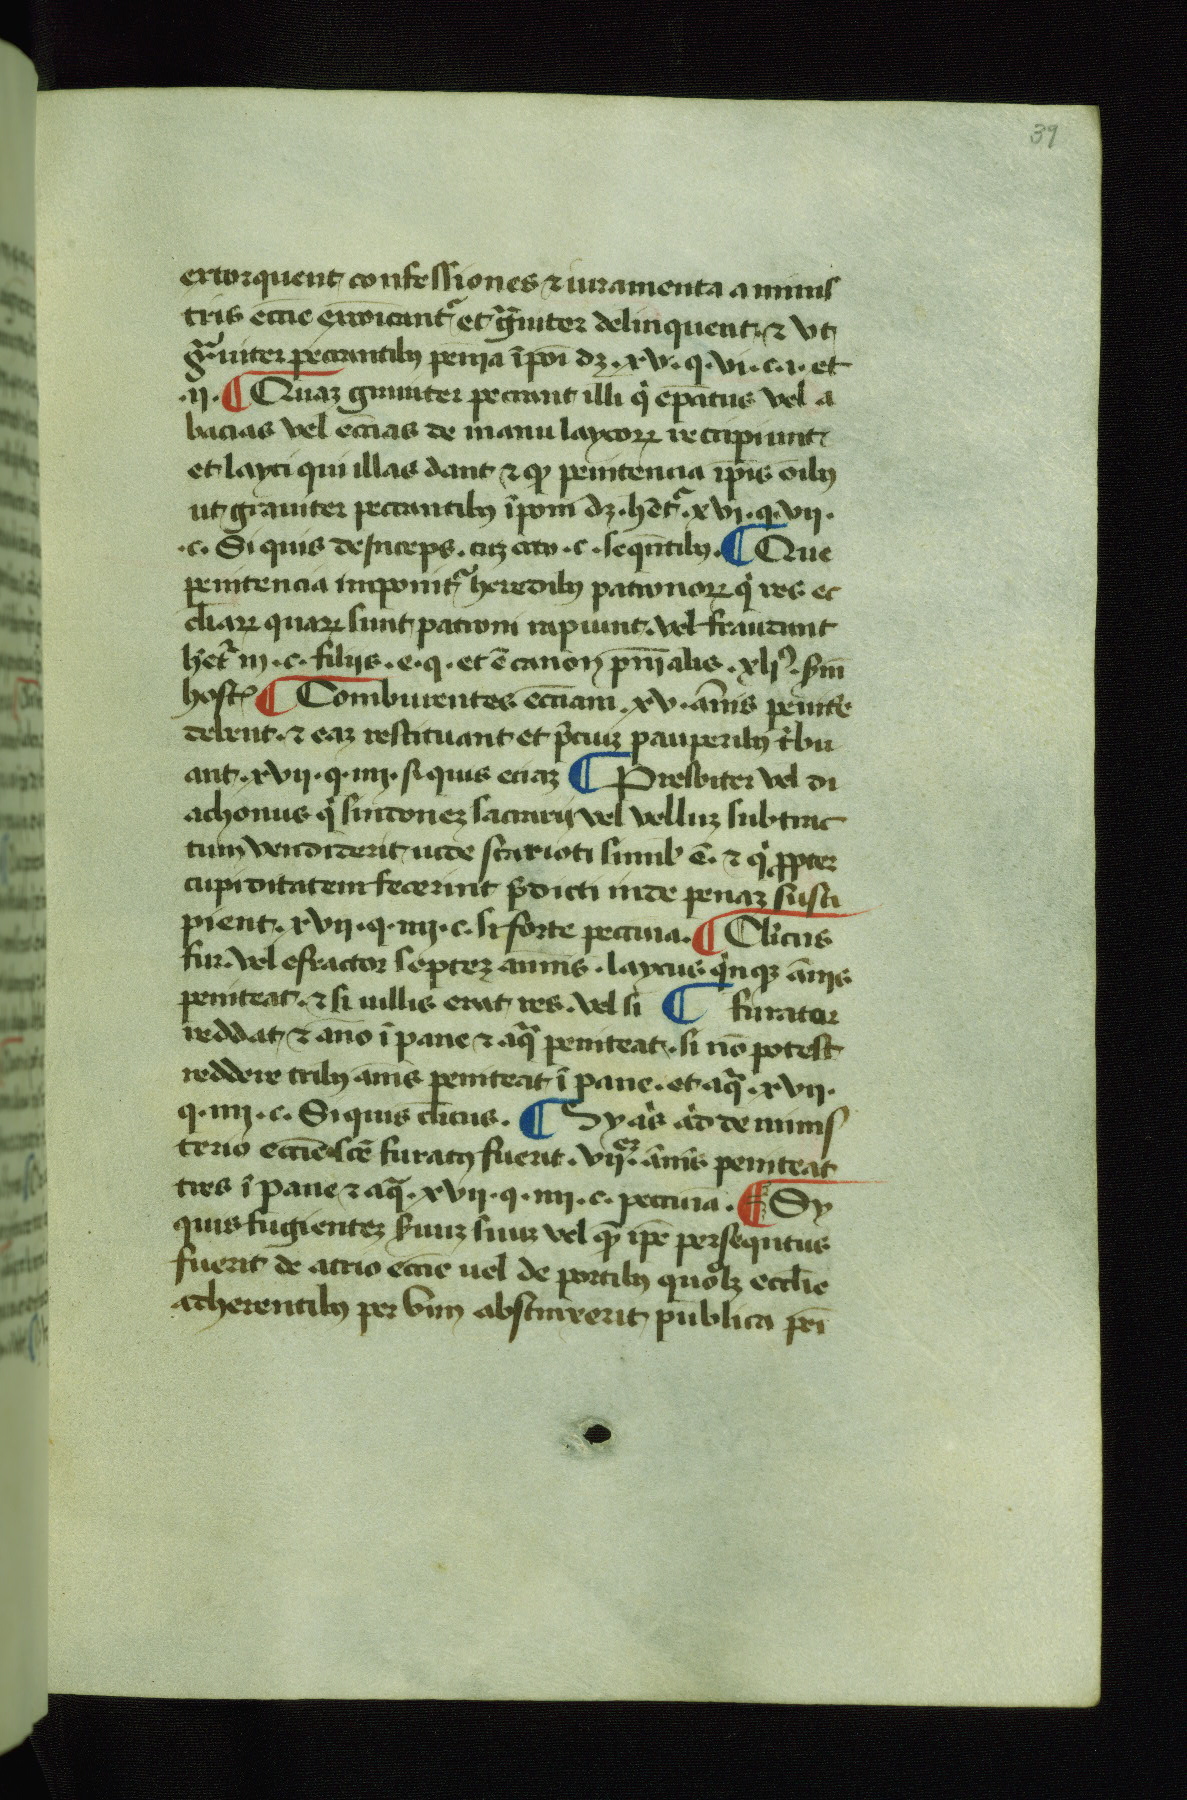 39
extorquent confessiones ⁊ iuramenta a minis
tris eccīe ex̄coīcant᷑ et gᷓuiter delinquent. ⁊ vt
gᷓuiter peccantibꝰ penīa īpoī dꝫ. xv. q. vi. c. i. et
.ij. ¶ Quaꝫ grauiter peccant illi qͥ ep̄atus vel a
bacias vel ecc̄ias de manu laycoꝝ recipiunt
et layci qui illas dant ⁊ qͩ penitencia ip̄is oībꝰ
ut grauiter peccantibꝰ īponi dꝫ. het᷑. xvi. q. vii.
.c. Si quis deinceps. cuꝫ .c. seqūtibꝰ. ¶ Que
penitencia imponit᷑ heredibꝰ patronoꝝ qͥ res ec
cl̄iaꝝ quaꝝ sunt patroni rapiunt. vel fraudant
het᷑ in .c. filijs. e. q. et ē canon pn̄ialis. xlij. sm̄
host᷑ ¶ Comburentes ecc̄iam. xv. ānis penitē
debent. ⁊ eaꝫ restituant et p̄ciuꝫ pauperibꝰ tͥbu
ant. xvii. q. iiij. si quis eciaꝫ ¶ Presbiter vel di
achonus qͥ sindoneꝫ sacrarij vel velluꝫ subtrac
tum vendiderit iude scarioti simil᷑ ē. ⁊ qͥ ꝓpter
cupiditatem fecerint p̄dicti inde penaꝫ susci
pient. xvii. q. iiij. c. si forte pecunia. ¶ Cl̄icus
fur. vel efractor septeꝫ annis. laycus qͥnqꝫ ānis
peniteat. ⁊ si uillis erat res. vel si ¶ furatur
reddat ⁊ āno ī pane ⁊ aqᷓ peniteat. si nō potest
reddere tribꝰ ānis peniteat ī pane. et aqᷓ. xvii.
q. iiij. c. Si quis cl̄icus. ¶ Sy qͥs aͥd de minis
terio eccīe sc̄e furatꝰ fuerit. vij. ānis peniteat
tres ī pane ⁊ aqᷓ. xvii. q. iiij. c. pecunia. ¶ Sy
quis fugienteꝫ ẜuuꝫ suuꝫ vel quē ip̄e persequtus
fuerit de atrio eccīe uel de portibꝰ quolꝫ eccl̄ie
adherentibꝰ per vim abstraxerit publica peī